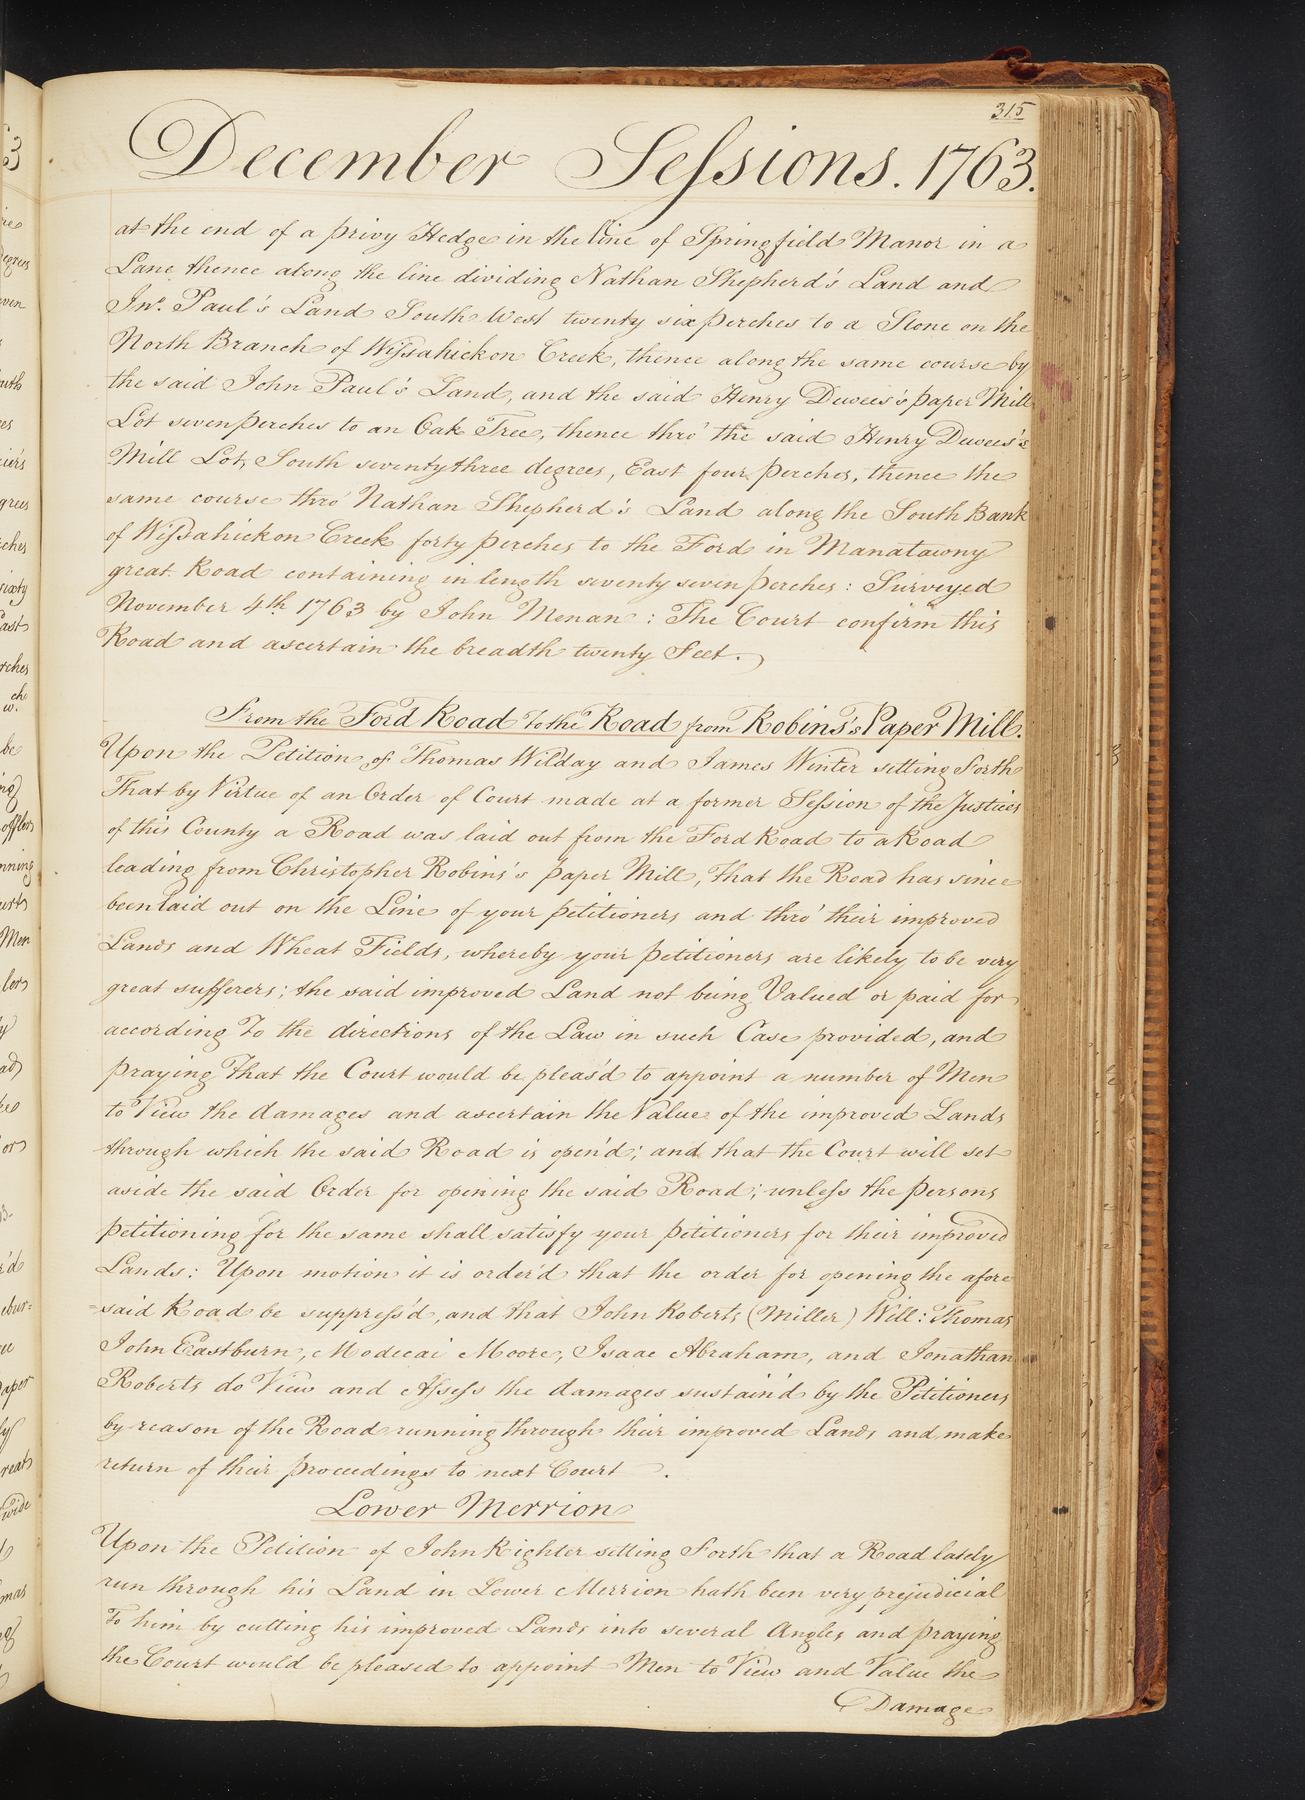 315
December Sessions. 1763.
at the end of a privy Hedge in the line of Springfield Manor in a
Lane thence along the line dividing Nathan Shepherd's Land and
Jno. Paul's Land South West twenty six perches to a Stone on the
North Branch of Wissahickon Creek, thence along the same course by
the said John Paul's Land, and the said Henry Dewees's paper Mill
Lot seven perches to an Oak Tree, thence thro' the said Henry Dewees's
Mill Lot, South seventy three degrees, East four perches, thence the
same course thro' Nathan Shepherd's Land along the South Bank
of Wissahickon Creek forty perches to the Ford in Manatawny
great Road containing in length seventy seven perches: Surveyed
November 4th 1763 by John Menan: The Court confirm this
Road and ascertain the breadth twenty Feet.
From the Ford Road To the Road from Robins's Paper Mill.
Upon the Petition of Thomas Wilday and James Winter setting Forth
That by Virtue of an Order of Court made at a former Session of the Justices
of this County a Road was laid out from the Ford Road to a Road
leading from Christopher Robins's paper Mill, that the Road has since
been laid out on the Line of your petitioners and thro' their improved
Lands and Wheat Fields, whereby your petitioners are likely to be very
great sufferers; the said improved Land not being Valued or paid for
according To the directions of the Law in such Case provided, and
praying That the Court would be pleas'd to appoint a number of Men
to View the damages and ascertain the Value of the improved Lands
through which the said Road is open'd; and that the Court will set
aside the said Order for opening the said Road; unless the persons
petitioning for the same shall satisfy your petitioners for their improved
Lands: Upon motion it is order'd that the order for opening the afore
=said Road be suppress'd, and that John Roberts (Miller) Will: Thomas
John Eastburn, Modecai Moore, Isaac Abraham, and Jonathan
Roberts do View and Assess the damages sustain'd by the Petitioners
by reason of the Road running through their improved Lands and make
return of their proceedings to next Court.
Lower Merrion
Upon the Petition of John Righter setting Forth that a Road lately
run through his Land in Lower Merrion hath been very prejudicial
To him by cutting his improved Lands into several Angles and praying
the Court would be pleased to appoint Men to View and Value the
Damage